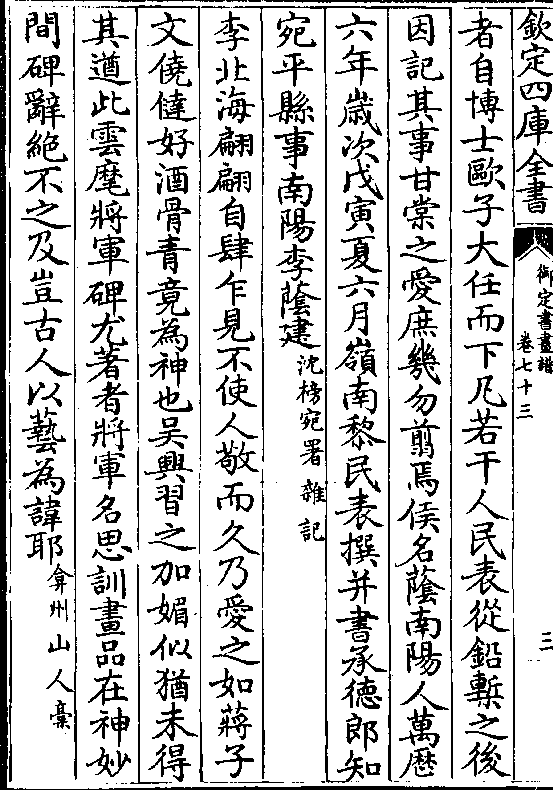 欽定四庫全書
御定書畫譜
卷七十三
三
者自博士歐子大任而下凡若干人民表從鉛槧之後
因記其事甘棠之愛庶幾勿翦焉侯名蔭南陽人萬歷
六年歲次戊寅夏六月嶺南黎民表撰并書承德郎知
宛平縣事南陽李蔭建沈榜宛署雜記
李北海翩翩自肆乍見不使人敬而久乃愛之如蔣子
文僥僥好酒骨青竟為神也吳興習之加媚似猶未得
其遒此雲麾將軍碑尤著者將軍名思訓畫品在神妙
間碑辭絕不之及豈古人以藝為諱耶弇州山人稾